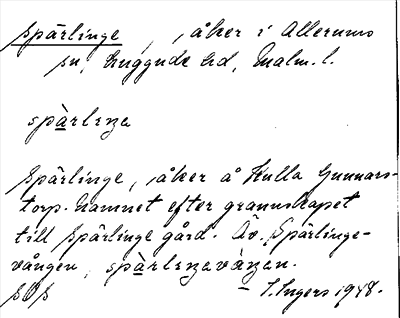 Spärlinge, åker i Allerums
sn, Luggude hd, Malm. l.
spàrlɩŋa
Spärlinge, åker å Kulla Gunnars-
torp. Namnet efter grannskapet
till Spärlinge gård. Äv. Spärlinge-
vången, spàrlɩŋavàŋen.
I. Ingers 1948.